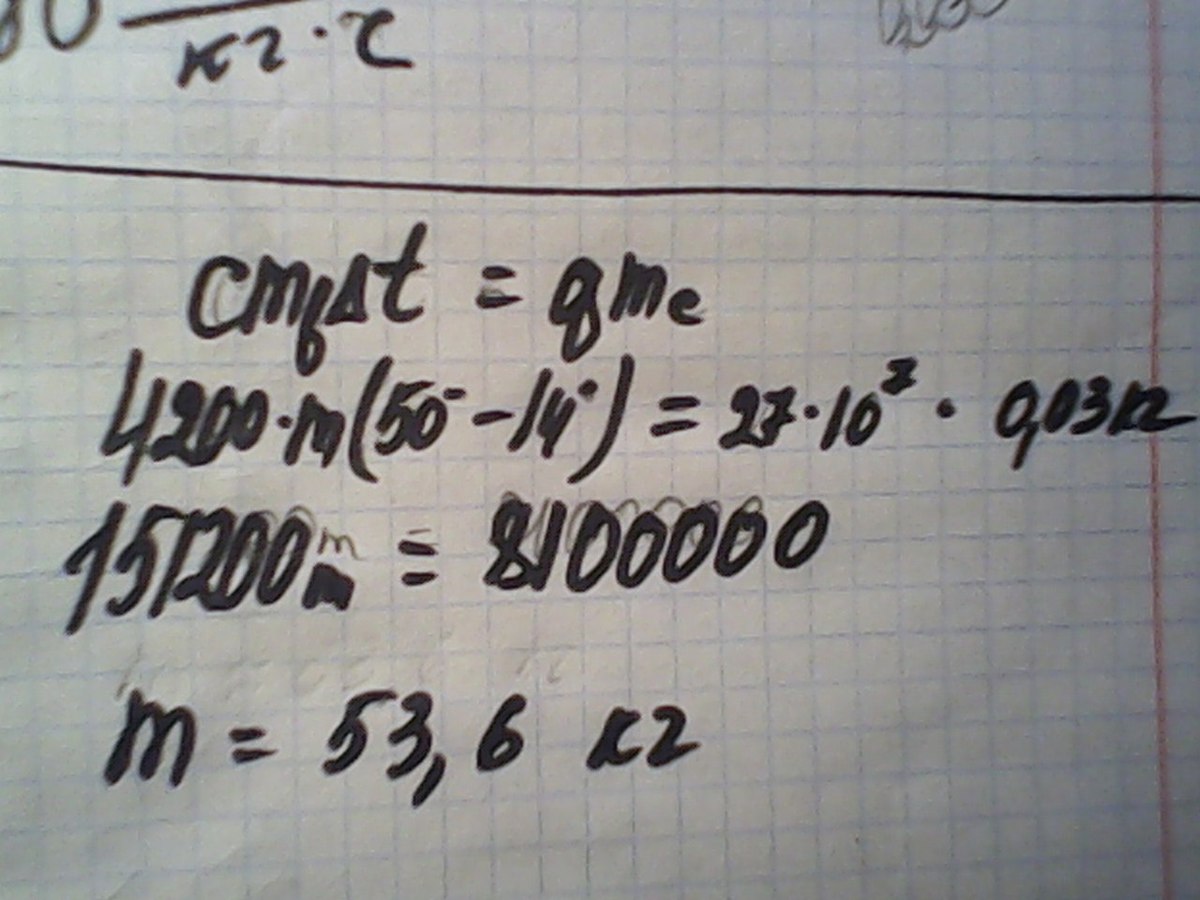 кг·С
cm_в Δt = qm_e
4200·m(50°-14°) = 27·10⁷ · 0,03кг
151200m = 8100000
m = 53,6 кг